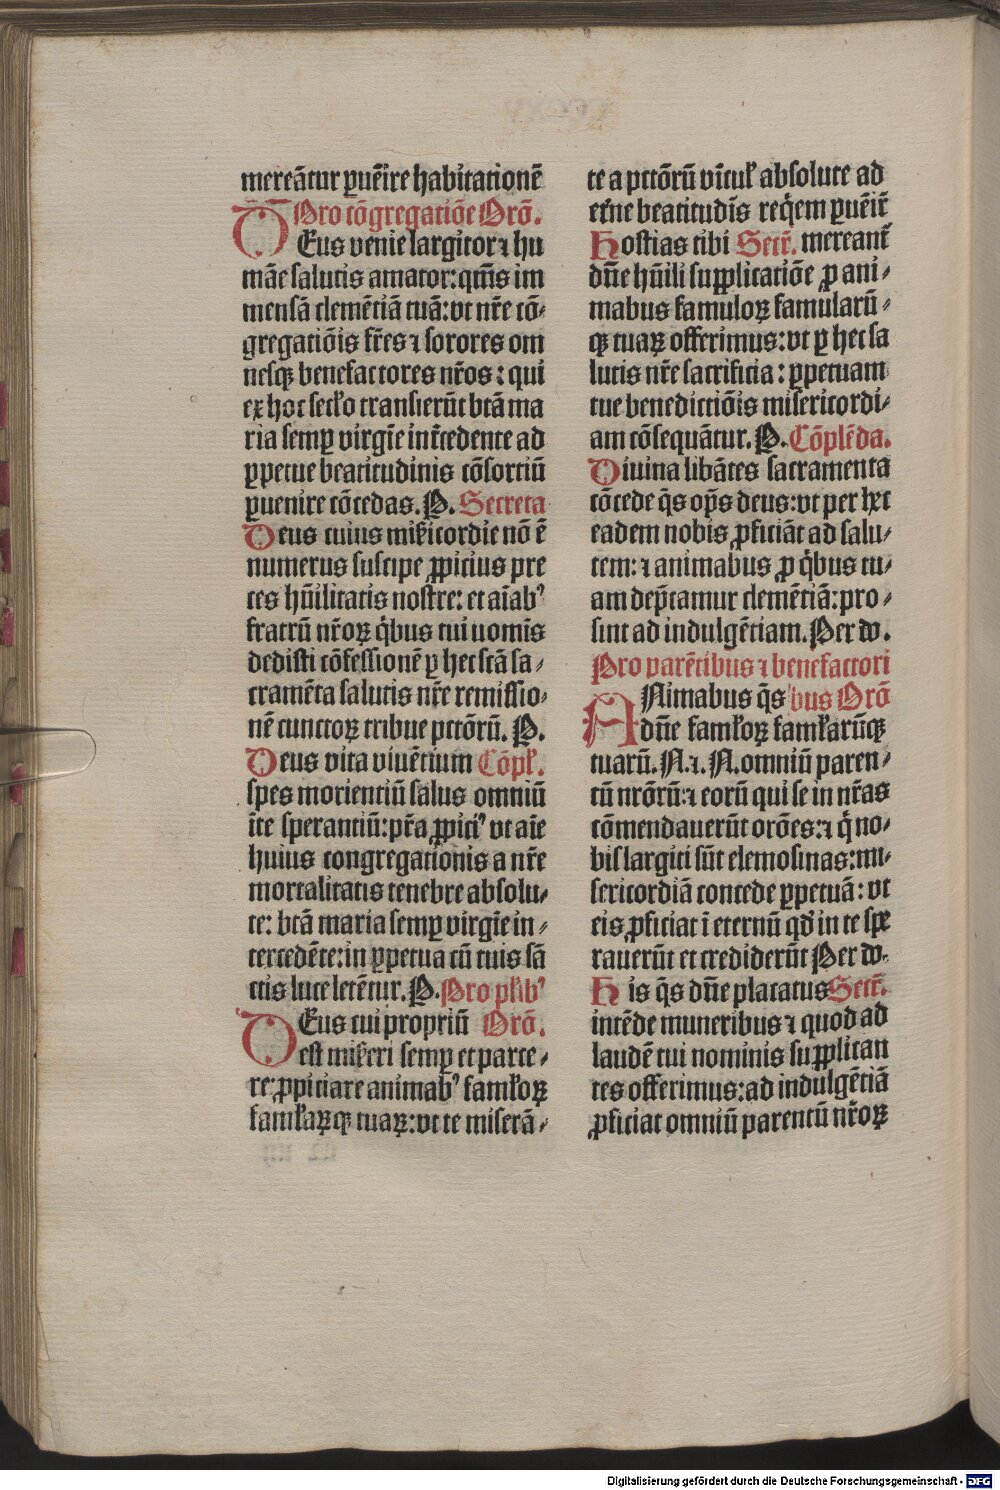 mereãtur ꝑuẽire habitationẽ
Pro cõgregatiõe Orõ.
DEus venie largitor ⁊ hu
mãe salutis amator: qm̃s im
mensã clemẽtiã tuã: vt nr̃e cõ-
gregatiõis fr̃es ⁊ sorores om
nesqꝫ benefactores nr̃os: qui
ex hoc sec̃lo transierũt btã ma
ria semꝑ virgĩe int̃cedente ad
ꝑpetue beatitudinis cõsortiũ
ꝑuenire cõcedas. P. Secreta
Deus cuius mĩcordie nõ ẽ
numerus suscipe ꝓpicius pre
ces hũilitatis nostre: et aĩabꝰ
fratrũ nr̃oꝝ q̃bus tui nomĩs
dedisti cõfessionẽ ꝑ hec sctã sa-
cramẽta salutis nr̃e remissio-
nẽ cunctoꝝ tribue pctõrũ. P.
Deus vita viuẽtium Cõpł.
spes morientiũ salus omniũ
ĩ te sperantiũ: pr̃a ꝓpiciꝰ vt aĩe
huius congregationis a nr̃e
mortalitatis tenebre absolu-
te: btã maria semꝑ virgĩe in-
tercedẽte: in ꝑpetua cũ tuis sã
ctis luce letẽtur. P. Pro płibꝰ
DEus cui propriũ Orõ.
est mĩseri semꝑ et parce-
re: ꝓpiciare animabꝰ famłoꝝ
famłaꝝqꝫ tuaꝝ: vt te miserã-
te a pctõrũ vĩcuł absolute ad
et̃ne beatitudĩs req̃em ꝑuẽit̃
Hostias tibi Secr̃. mereant̃
dñe hũili supplicatiõe ꝓ ani-
mabus famuloꝝ famularũ-
qꝫ tuaꝝ offerimus: vt ꝑ hec sa
lutis nr̃e sacrificia: ꝑpetuam
tue benedictiõis misericordi-
am cõsequãtur. P. Cõplẽda.
Diuina libãtes sacramenta
cõcede q̃s op̃s deus: vt per hec
eadem nobis ꝓficiãt ad salu-
tem: ⁊ animabus ꝓ q̃bus tu-
am dep̃camur clemẽtiã: pro-
sint ad indulgẽtiam. Per do.
Pro parẽtibus ⁊ benefactori
ANimabus q̃s bus Orõ
dñe famłoꝝ famłarũqꝫ
tuarũ. N. ⁊. N. omniũ paren-
tũ nrõrũ: ⁊ eorũ qui se in nr̃as
cõmendauerũt orões: ⁊ q̃ no-
bis largiti sũt elemosinas: mi-
sericordiã concede ꝑpetuã: vt
eis ꝓficiat ĩ eternũ qd̃ in te spe
rauerũt et crediderũt Per do.
His q̃s dñe placatus Secr̃.
intẽde muneribus ⁊ quod ad
laudẽ tui nominis supplican
tes offerimus: ad indulgẽtiã
ꝓficiat omniũ parentũ nr̃oꝝ
Digitalisierung gefördert durch die Deutsche Forschungsgemeinschaft - DFG